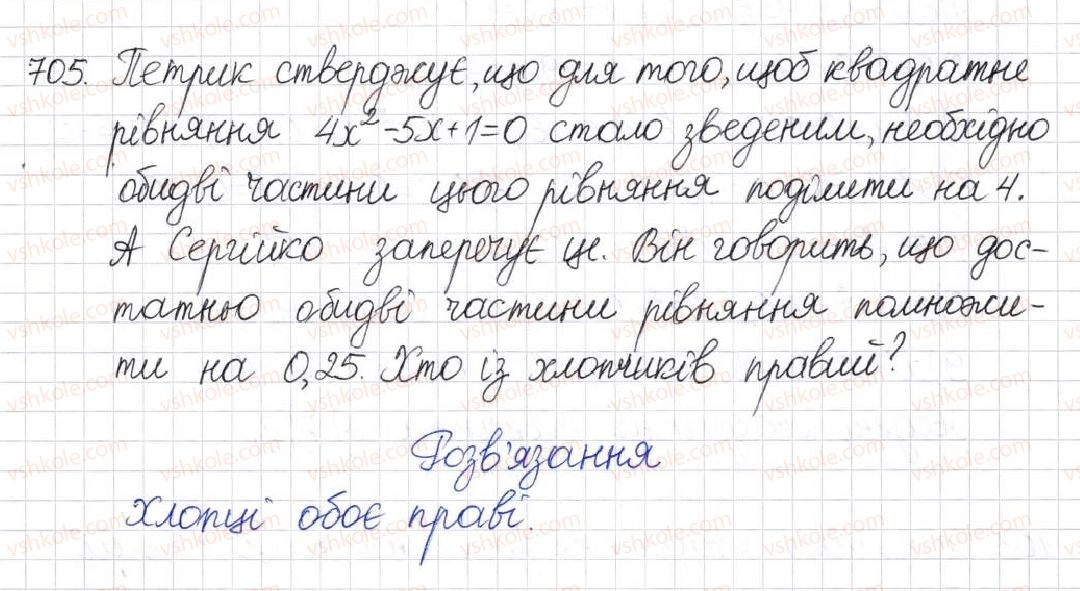 705. Петрик стверджує, що для того, щоб квадратне
рівняння 4x²-5x+1=0 стало зведеним, необхідно
обидві частини цього рівняння поділити на 4.
А Сергійко заперечує це. Він говорить, що дос-
татньо обидві частини рівняння помножи-
ти на 0,25. Хто із хлопчиків правий?
Розв'язання
Хлопці обоє праві.
vshkole.com